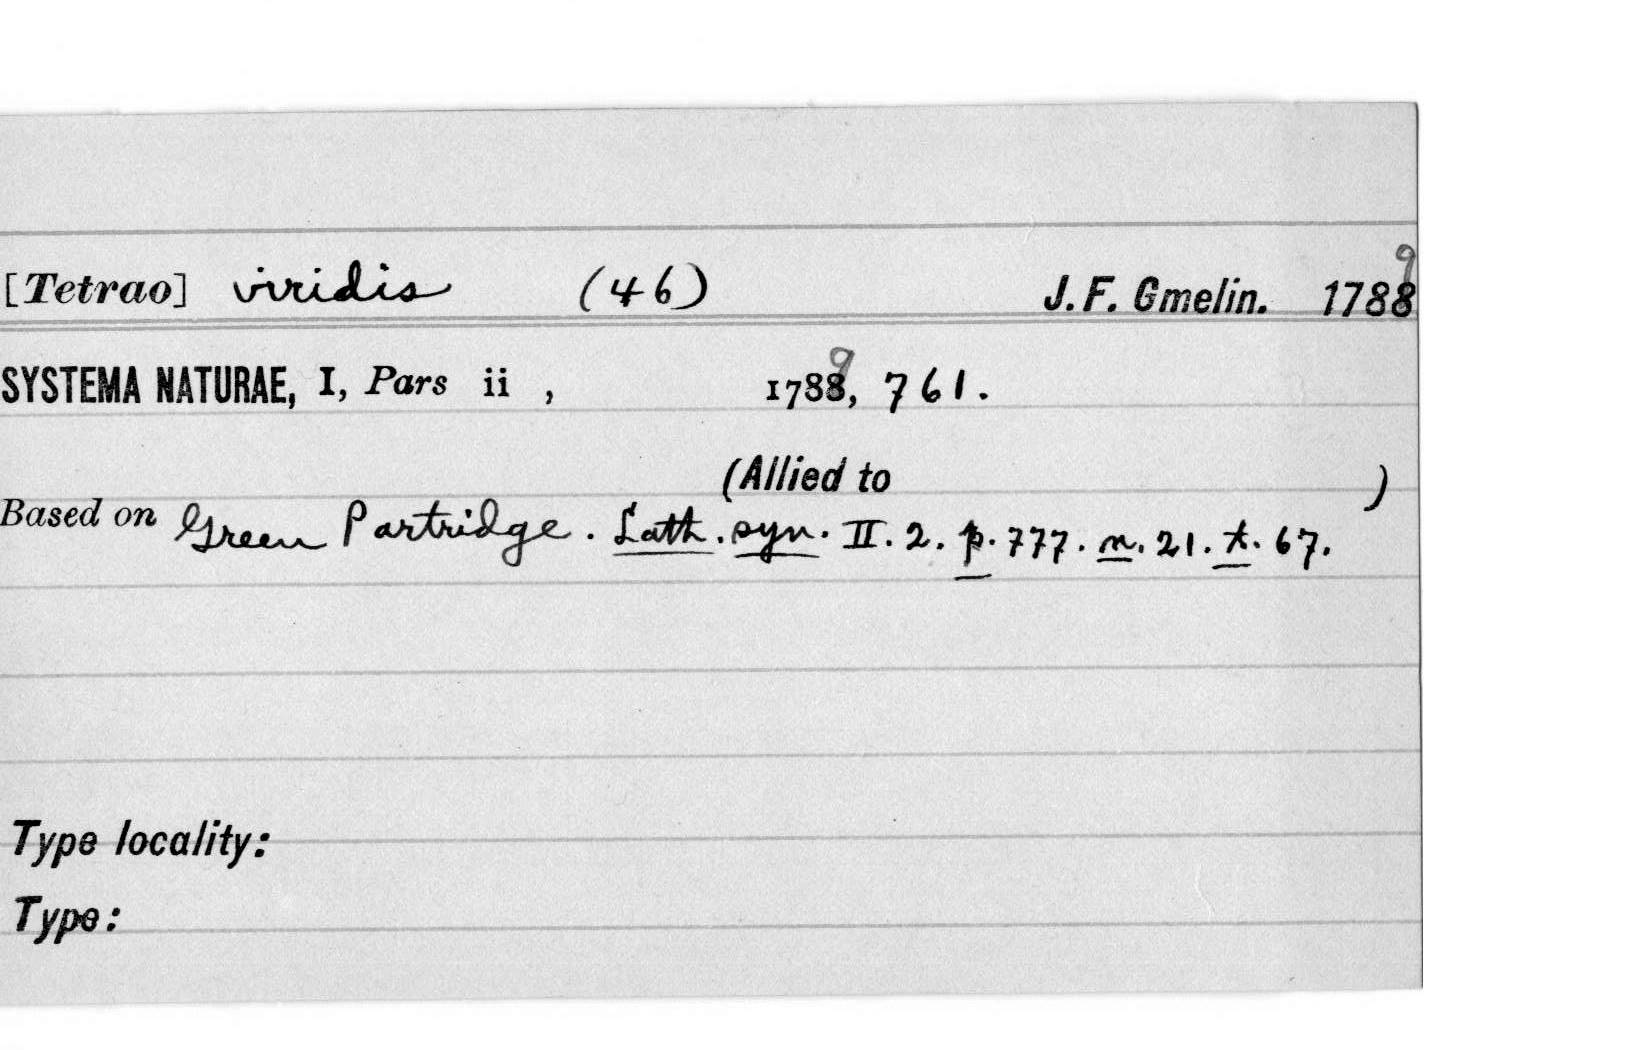 [Tetrao] viridis (46) J. F. Gmelin. 1788 9
SYSTEMA NATURAE, I, Pars ii , 1788 9, 761.
(Allied to )
Based on Green Partridge. Lath. syn. II. 2. p. 777. n. 21. t. 67.
Type locality:
Type: